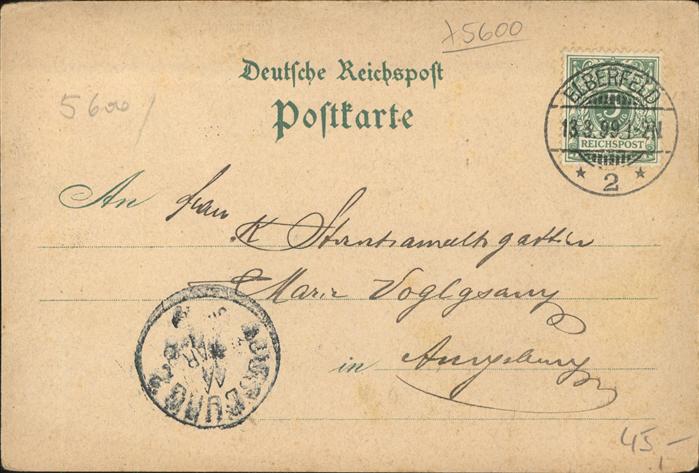 x5600
Deutsche Reichspost
Postkarte
5600/
ELBERFELD
13.3.99.1-2N
REICHSPOST
* 2 *
An Frau
K Staatsanwaltsgattin
Marie Voglgsang
in Augsburg
AUGSBURG 2
MAR
45,-